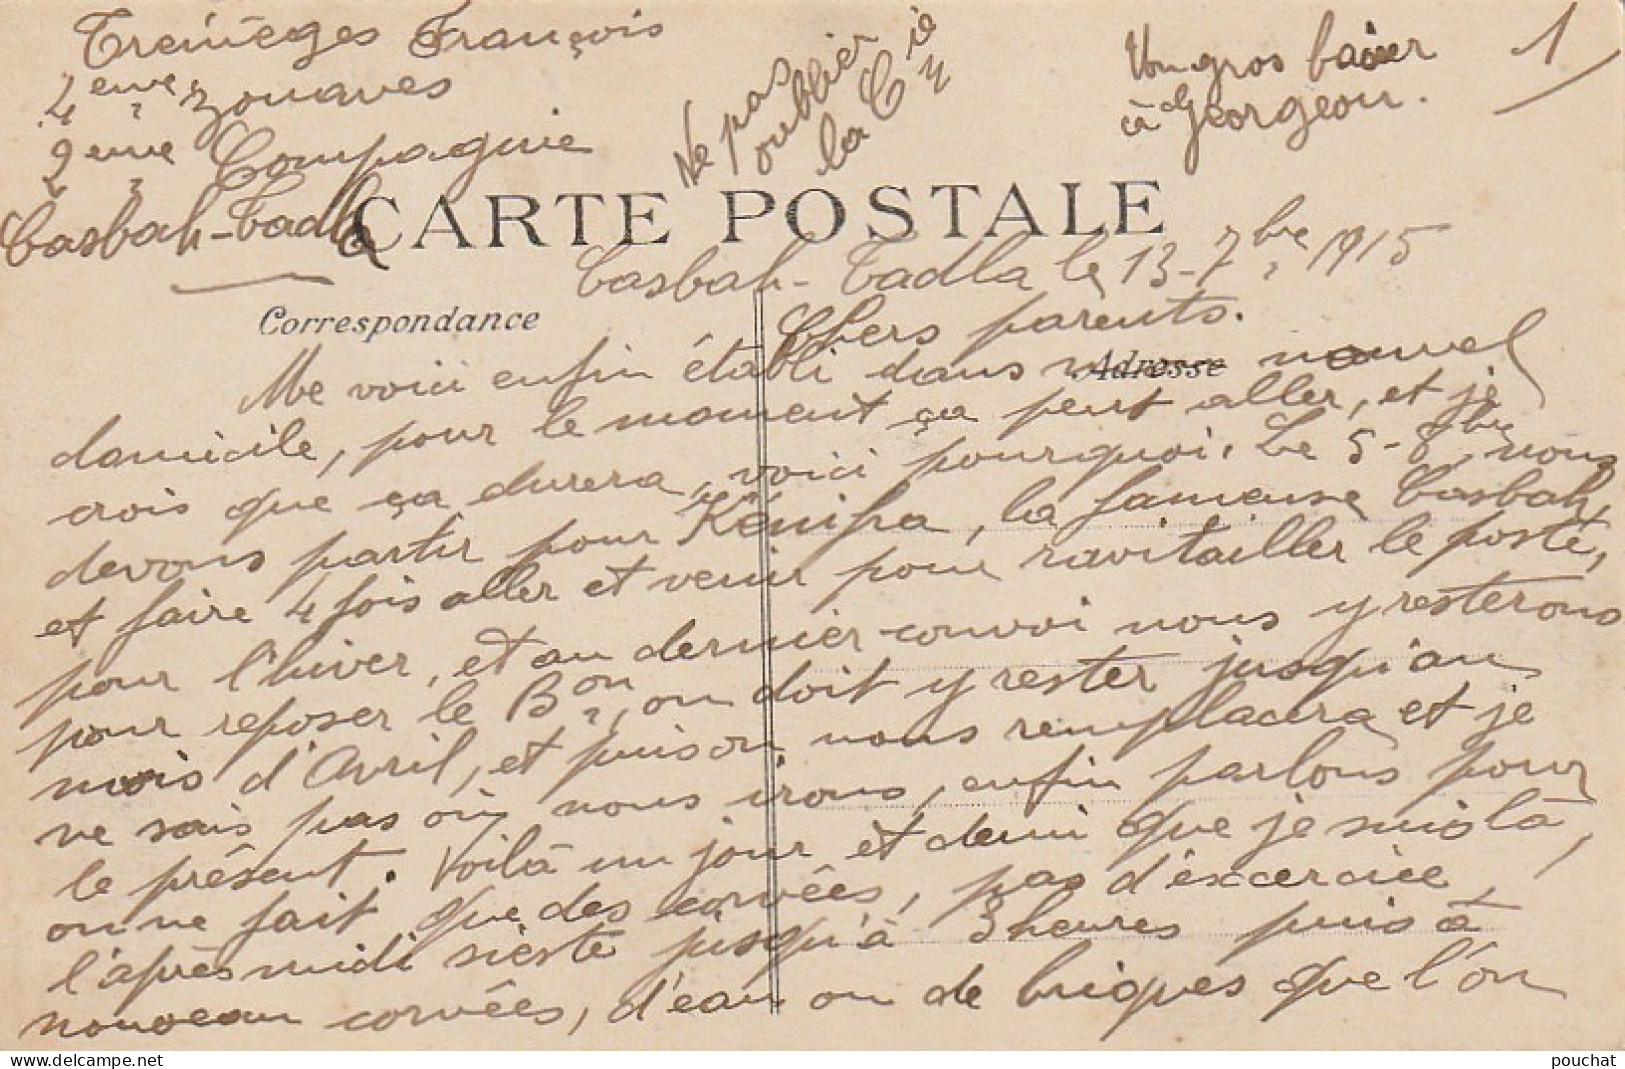 Tremèges François
4ème Zouaves
2ème Compagnie
Casbah-Tadla
Ne pas
oublier
la Cie
Un gros baiser
à Georgeou.
1
CARTE POSTALE
Casbah-Tadla le 13-7bre 1915
Correspondance
Chers parents.
Adresse
Me voici enfin établi dans nouvel
domicile, pour le moment ça peut aller, et je
crois que ça durera, voici pourquoi. Le 5-8bre nous
devons partir pour Kénifra, la fameuse Casbah,
et faire 4 fois aller et venir pour ravitailler le poste,
pour l'hiver, et au dernier convoi nous y resterons
pour reposer le Bon, on doit y rester jusqu'au
mois d'Avril, et puis on nous remplacera et je
ne sais pas où nous irons, enfin parlons pour
le présent. Voilà un jour et demi que je suis là,
on ne fait que des corvées, pas d'éxcercice,
l'après midi sieste jusqu'à 3 heures puis à
nouveau corvées, d'eau ou de briques que l'on
pouchat
www.delcampe.net